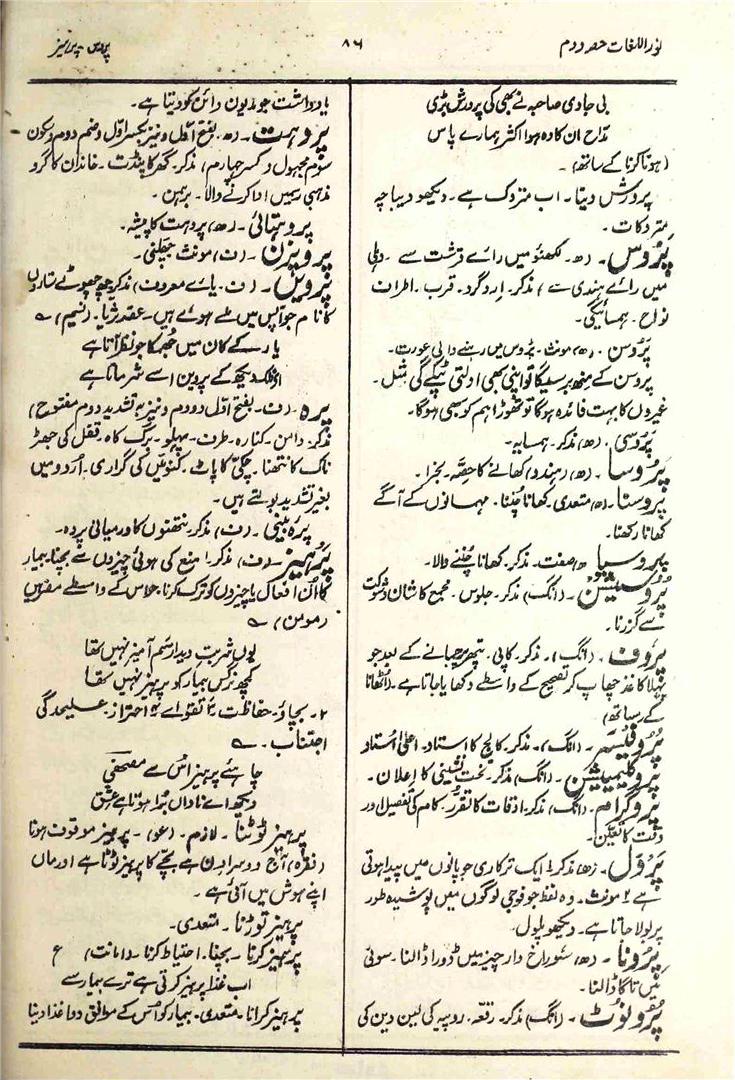 نور اللغات حصہ دوم
۸۶
پروس - پرہیز
بی جادی صاحبہ نے بھی کی پرورش بڑی
مداح ان کا دہ ہوا اکثر ہمارے پاس
(ہونا کرنا کے ساتھ)۔
پرورش دینا۔ اب متروک ہے۔ دیکھو دیباچہ
متروکات۔
پَرُوس۔ (ھ۔ لکھنؤ میں رائے قرشت سے ۔ دہلی
میں رائے ہندی سے) مذکر۔ اِرد گرد۔ قرب۔ اطراف
نواح۔ ہمسایگی۔
پَرُوسن۔ (ھ) مونث۔ پڑوس میں رہنے والی عورت۔
پروسن کے منھ برسیگا تو اپنی بھی اولتی ٹپکے گی مثل۔
غیروں کا بہت فائدہ ہوگا تو تھوڑا ہم کو بھی ہوگا۔
پَرُوسی۔ (ھ) مذکر۔ ہمسایہ۔
پَرُوسا۔ (ھ) (ہندو) کھانے کا حصّہ۔ بخرا۔
پروسنا۔ (ھ) متعدی۔ کھانا چننا۔ مہمانوں کے آگے
کھانا رکھنا۔
پروسیا (ھ) صفت۔ مذکر۔ کھانا چُننے والا۔
پُروسیشن۔ (انگ) مذکر۔ جلوس۔ مجمع کا شان و شوکت
سے گزرنا۔
پُروف۔ (انگ)۔ مذکر۔ کاپی۔ پتھر پر جمانے کے بعد جو
پہلا کاغذ چھاپ کر تصحیح کے واسطے دکھایا جاتا ہے۔ (اُٹھانا
کے ساتھ)
پُروفیسر۔ (انگ)۔ مذکر۔ کالج کا استاد۔ اعلیٰ اُستاد
پروکلیمیشن۔ (انگ) مذکر۔ تخت نشینی کا اعلان۔
پروگرام۔ (انگ) مذکر۔ اوقات کا تقرّر۔ کام کی تفصیل اور
وقت کا تعیّن۔
پَرْوَل۔ (ھ) مذکر۔ ۱ ایک ترکاری جو پانوں میں پیدا ہوتی
ہے ۲ مونث۔ وہ لفظ جو فوجی لوگوں میں پوشیدہ طور
پر بولا جاتا ہے۔ دیکھو بلول۔
پِرُونا۔ (ھ) سوراخ دار چیز میں ڈورا ڈالنا۔ سوئی
میں تاگا ڈالنا۔
پُرونوٹ۔ (انگ) مذکر۔ رقعہ۔ روپیہ کی لین دین کی
یادداشت جو مدیون دائن کو دیتا ہے۔
پروہت۔ (ھ۔ بفتح اوّل و نیز بضم اوّل و ضم دوم و سکون
سوم مجہول و کسر چہارم) مذکر۔ گھر کا پنڈت۔ خاندان کا گرو
مذہبی رسمیں ادا کرنے والا۔ برہمن۔
پروہتائی۔ (ھ) پروہت کا پیشہ۔
پرویزن۔ (ن) مونث۔ چھلنی۔
پَروین۔ (ن۔ یائے معروف) مذکر۔ چھ چھوٹے ستاروں
کا نام جو آپس میں ملے ہوئے ہیں۔ عقد ثریا۔ (نسیم) ؎
یار کے کان میں جُھمکا جو نظر آتا ہے
دیکھ کے پروین اسے شرماتا ہے
پرہ۔ (ن۔ بفتح اوّل و دوم و نیز بہ تشدید دوم مفتوح)
مذکر۔ دامن۔ کنارہ۔ طرف۔ پہلو۔ برگ کاہ۔ قفل کی جھڑ
ناک کا نتھنا۔ چکّی کا پاٹ۔ کنوئیں کی گراری۔ اُردو میں
بغیر تشدید بولتے ہیں۔
پرہ بینی۔ (ن) مذکر۔ نتھنوں کا درمیانی پردہ۔
پرہیز۔ (ن) مذکر۔ ۱ منع کی ہوئی چیزوں سے بچنا۔ بیمار
کا اُن افعال یا چیزوں کو ترک کرنا جو اس کے واسطے مضر ہیں
(مومن) ؎
یوں شربت دیدار سَم آمیز نہیں تھا
کچھ نرگس بیمار کو پرہیز نہیں تھا
۲۔ بچاؤ۔ حفاظت ۳ تقویٰ ۴ احتراز۔ علیحدگی
اجتناب۔ ؎
چاہئے پرہیز اُس سے مصحفی
دیکھ اے ناداں بُرا ہوتا ہے عشق
پرہیز ٹوٹنا۔ لازم۔ (عو)۔ پرہیز موقوف ہونا
(فقرہ) آج دوسرا دن ہے بچّے کا پرہیز ٹوٹا ہے اور ماں
اپنے ہوش میں آئی ہے۔
پرہیز توڑنا۔ متعدی۔
پرہیز کرنا۔ بچنا۔ احتیاط کرنا۔ (امانت) ع
اب غذا پرہیز کرتی ہے ترے بیمار سے
پرہیز کرانا۔ متعدی۔ بیمار کو اُس کے موافق دوا غذا دینا